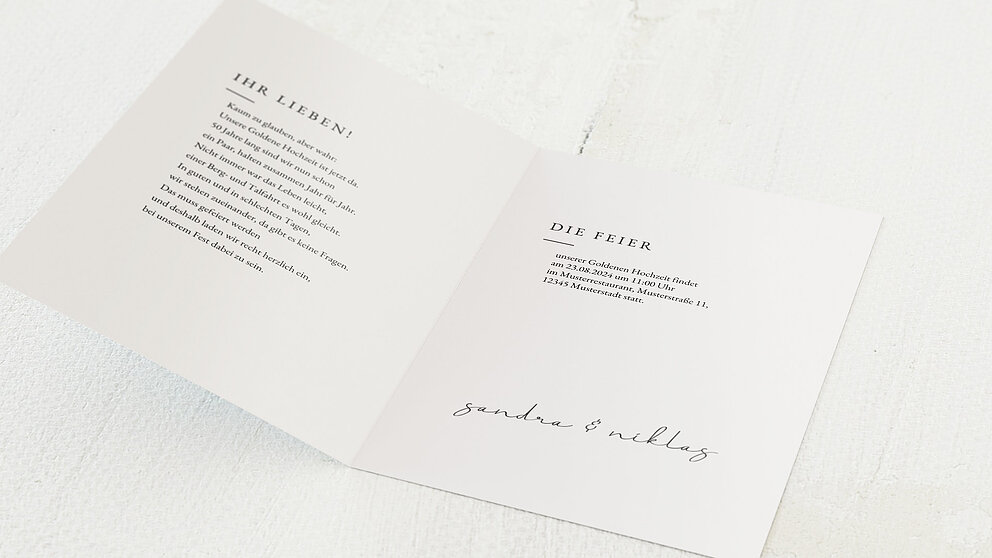 IHR LIEBEN!
Kaum zu glauben, aber wahr:
Unsere Goldene Hochzeit ist jetzt da.
50 Jahre lang sind wir nun schon
ein Paar, halten zusammen Jahr für Jahr.
Nicht immer war das Leben leicht,
einer Berg- und Talfahrt es wohl gleicht.
In guten und in schlechten Tagen,
wir stehen zueinander, da gibt es keine Fragen.
Das muss gefeiert werden
und deshalb laden wir recht herzlich ein,
bei unserem Fest dabei zu sein.
DIE FEIER
unserer Goldenen Hochzeit findet
am 23.08.2024 um 11:00 Uhr
im Musterrestaurant, Musterstraße 11,
12345 Musterstadt statt.
sandra & niklas